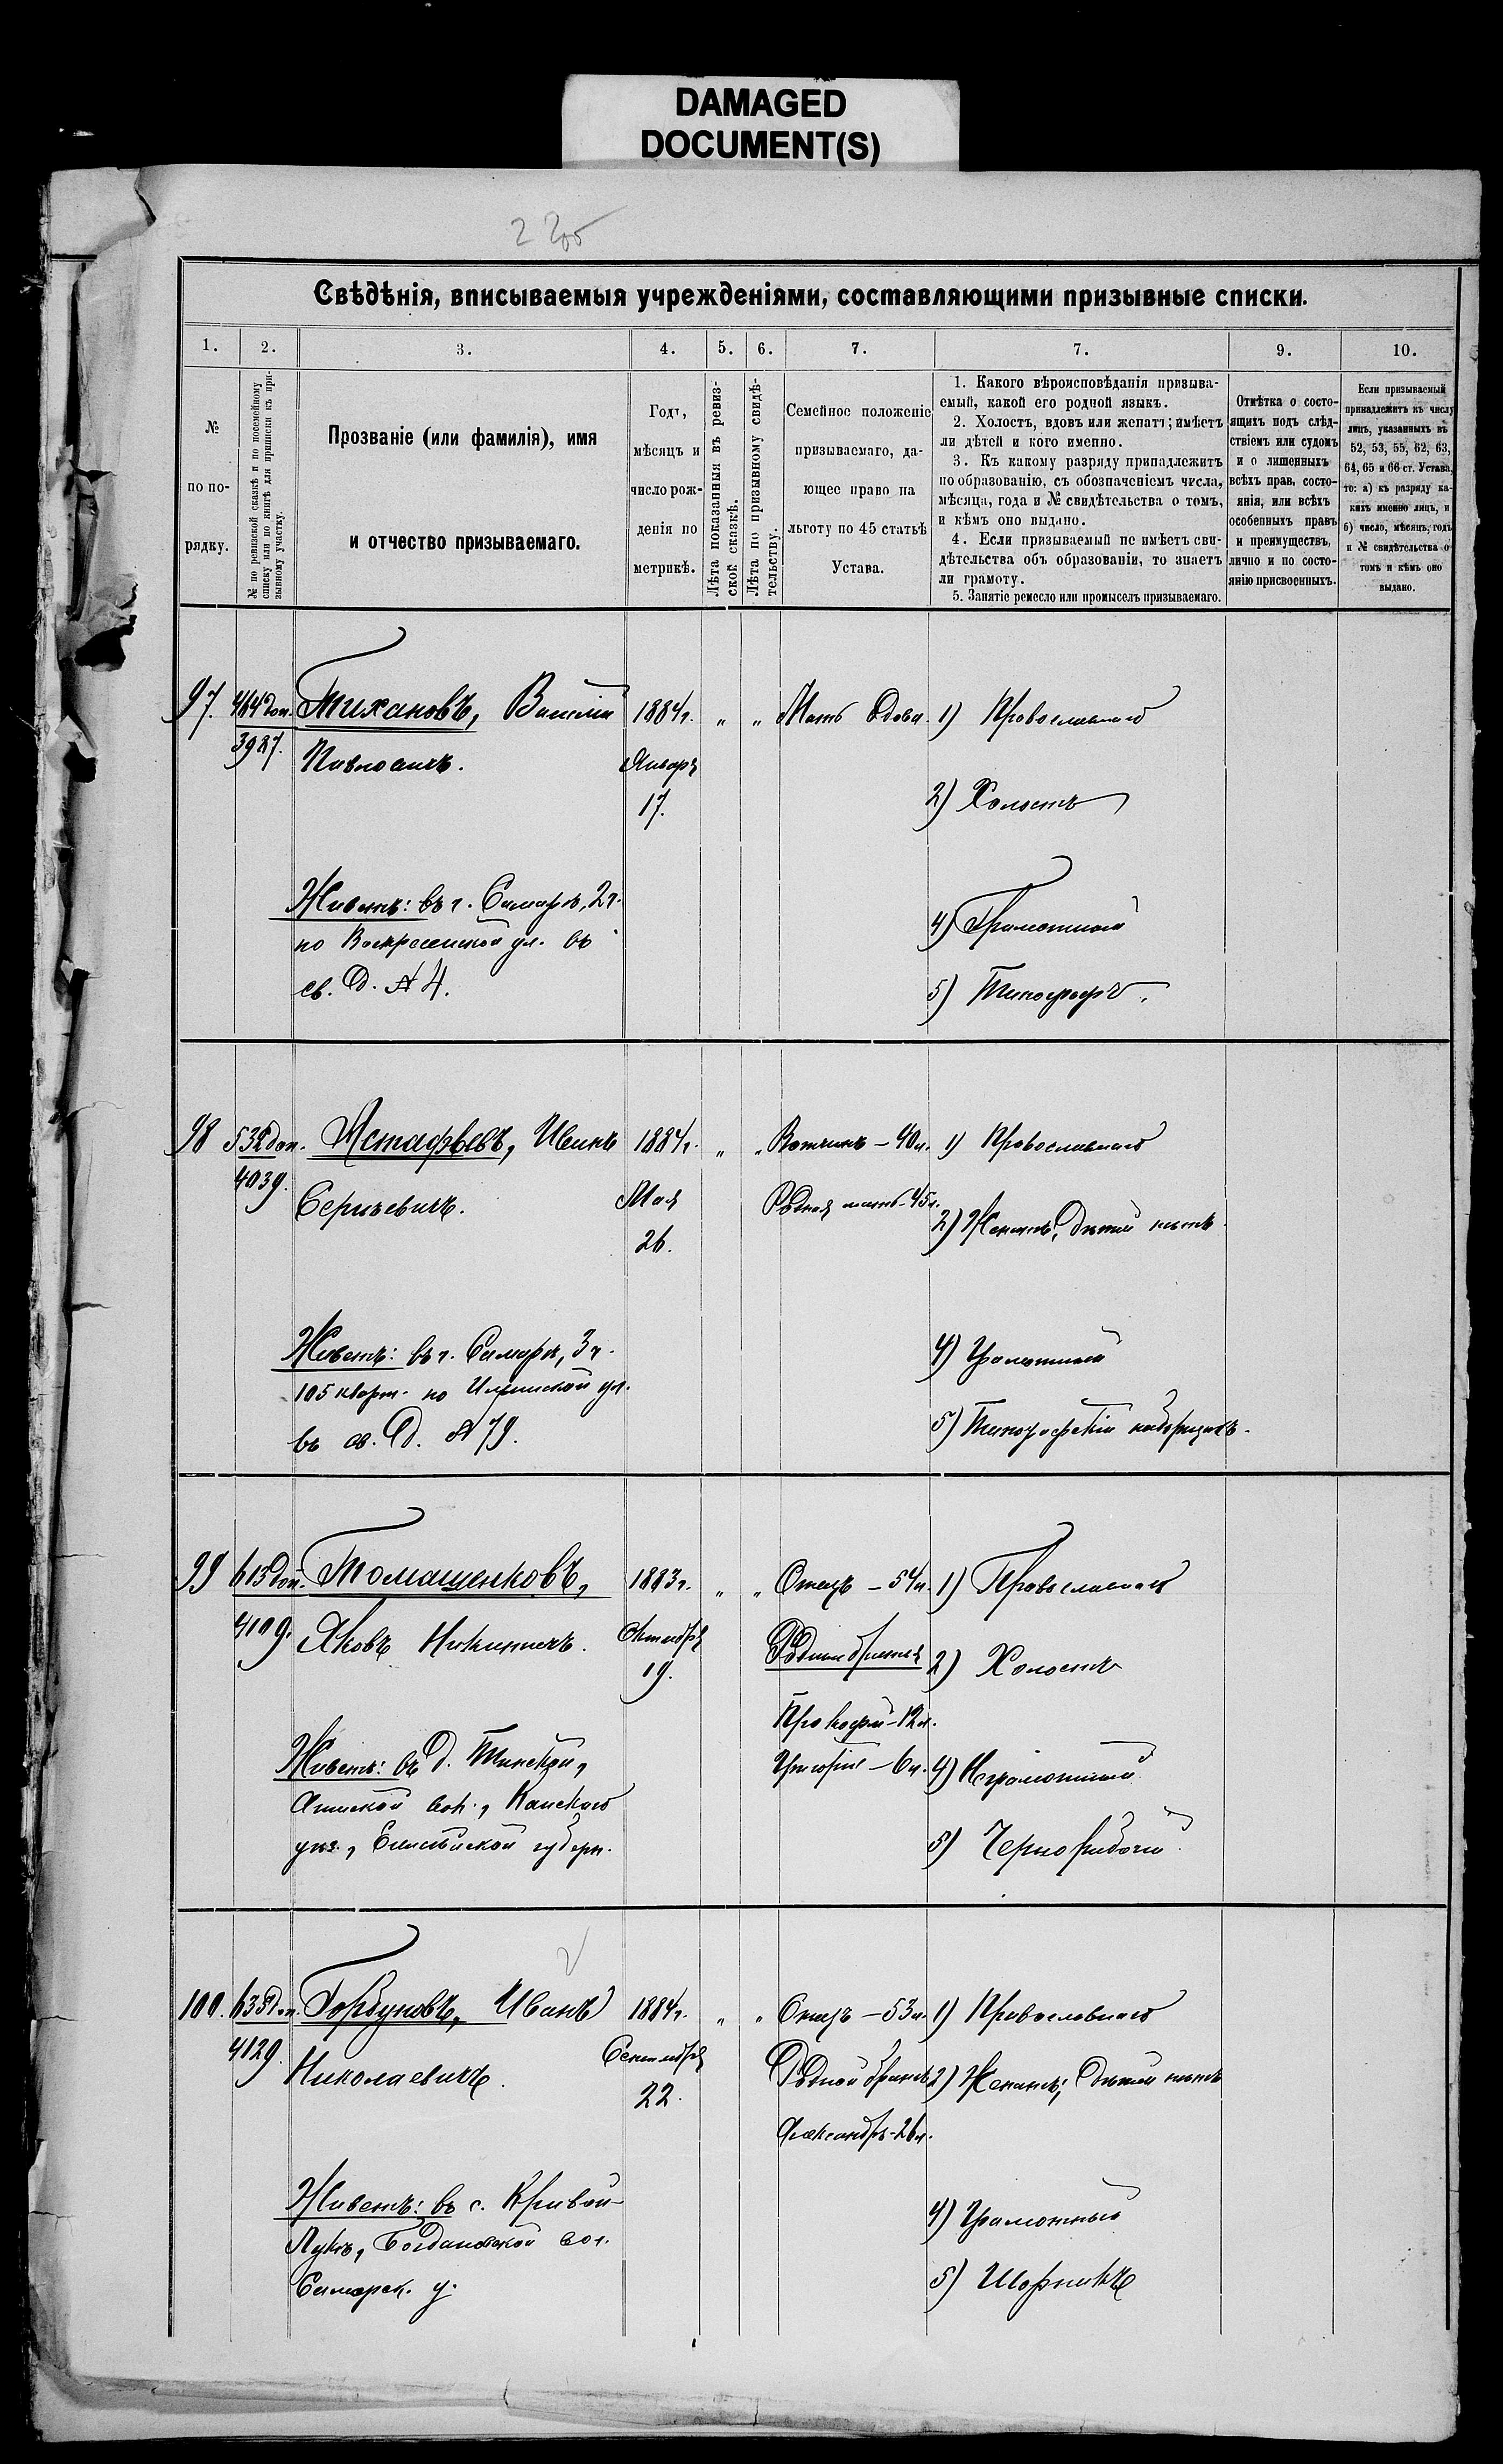 DAMAGED
DOCUMENT(S)
Свѣдѣнія, вписываемыя учрежденіями, составляющими призывные списки.
1. 2. 3. 4. 5. 6. 7. 7. 9. 10.
№
по по-
рядку.
№ по ревизской сказкѣ и по посемейному
списку или по книгѣ для приписки къ при-
зывному участку.
Прозваніе (или фамилія), имя
и отчество призываемаго.
Годъ,
мѣсяцъ и
число рож-
денія по
метрикѣ.
Лѣта показанныя въ ревиз-
ской сказкѣ.
Лѣта по призывному свидѣ-
тельству.
Семейное положеніе
призываемаго, да-
ющее право на
льготу по 45 статьѣ
Устава.
1. Какого вѣроисповѣданія призыва-
емый, какой его родной языкъ.
2. Холостъ, вдовъ или женатъ; имѣетъ
ли дѣтей и кого именно.
3. Къ какому разряду принадлежитъ
по образованію, съ обозначеніемъ числа,
мѣсяца, года и № свидѣтельства о томъ,
и кѣмъ оно выдано.
4. Если призываемый не имѣетъ сви-
дѣтельства объ образованіи, то знаетъ
ли грамоту.
5. Занятіе ремесло или промыселъ призываемаго.
Отмѣтка о состо-
ящихъ подъ слѣд-
ствіемъ или судомъ
и о лишенныхъ
всѣхъ прав. состо-
янія, или всѣхъ
особенныхъ правъ
и преимуществъ,
лично и по состо-
янію присвоенныхъ.
Если призываемый
принадлежитъ къ числу
лицъ, указанныхъ въ
52, 53, 55, 62, 63,
64, 65 и 66 ст. Устава,
то: а) къ разряду ка-
кихъ именно лицъ, и
б) число, мѣсяцъ, годъ
и № свидѣтельства о
томъ и кѣмъ оно
выдано.
97. 464 доп. Тихановъ, Василій 1884 г. " " Мать вдова. 1) Православнаго
3987. Павловичъ. Января
17.
2) Холостъ
Живетъ: въ г. Самарѣ, 2 ч.
по Воскресенской ул. въ
св. д. № 4.
4) Грамотный
5) Типографъ.
98 532 доп. Астафьевъ, Иванъ 1884 г. " " Вотчимъ – 40 л. 1) Православнаго
4039. Сергѣевичъ. Мая Родная мать – 45 л.
26.
2) Женатъ, дѣтей нѣтъ
Живетъ: въ г. Самарѣ, 3 ч.
105 кварт. по Ильинской ул.
въ св. д. № 79.
4) Грамотный
5) Типографскій наборщикъ.
99 613 доп. Томашенковъ, 1883 г. " " Отецъ – 54 л. 1) Православнаго
4109. Яковъ Никитичъ. Октября Родные братья
19.
2) Холостъ
Прокофій – 12 л.
Григорій – 6 л.
Живетъ: въ д. Тинской,
волн., Канскаго
уѣз., Енисейской губерн.
4) Неграмотный
5) Чернорабочій
100. 633 доп. Горбуновъ, Иванъ 1884 г. " " Отецъ – 53 л. 1) Православнаго
4129. Николаевичъ. Сентября Родной братъ
22.
2) Женатъ; дѣтей нѣтъ
Александръ – 26 л.
Живетъ: въ с. Кривой-
Лукѣ, Богдановской вол.
Самарск. у.
4) Грамотный
5) Шорникъ